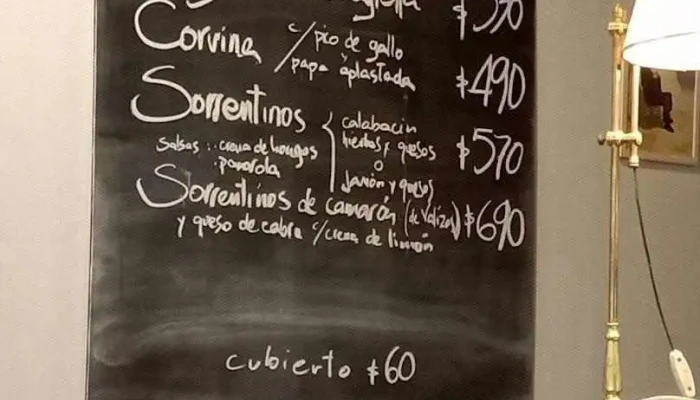 $570
Corvina c/ pico de gallo
y
papa aplastada $490
Sorrentinos calabacin
hierbas y quesos $570
o
Jamón y quesos
Salsas: .crema de hongos
.parorola
Sorrentinos de camarón (de Valizas) $690
y queso de cabra c/crema de limón
cubierto $60